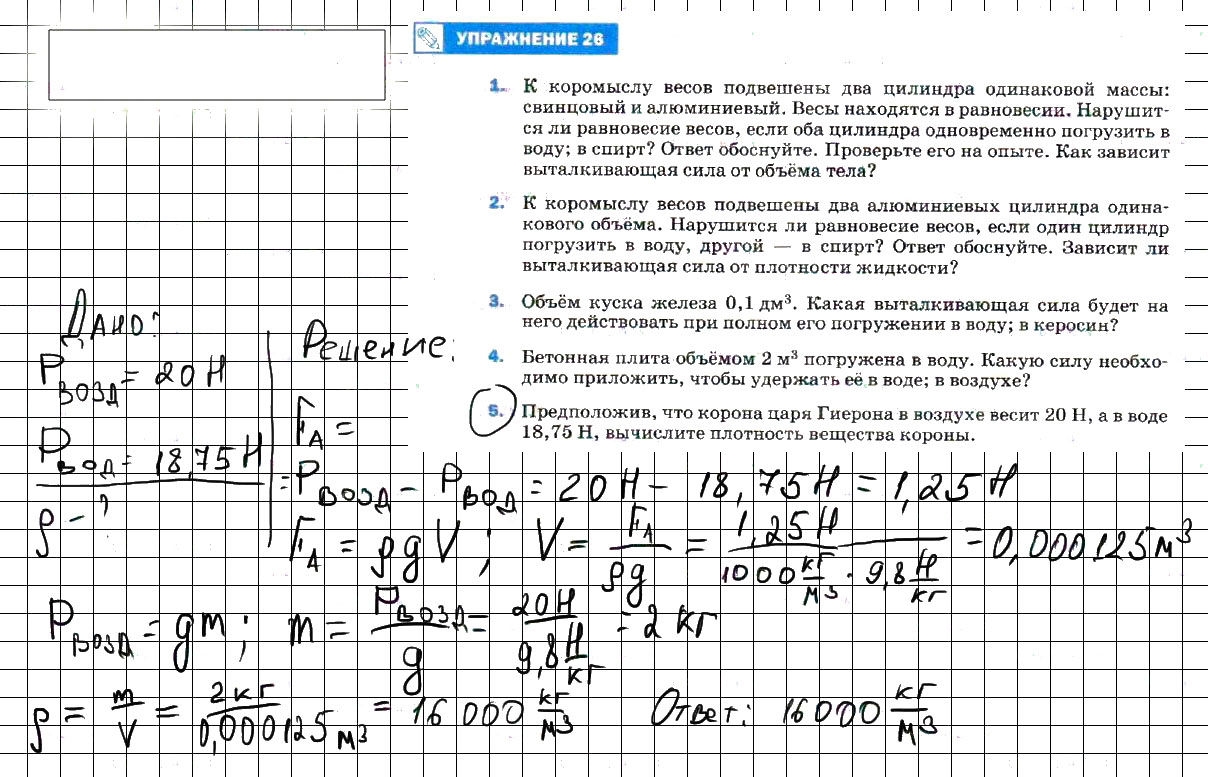 УПРАЖНЕНИЕ 26
1. К коромыслу весов подвешены два цилиндра одинаковой массы:
свинцовый и алюминиевый. Весы находятся в равновесии. Нарушит-
ся ли равновесие весов, если оба цилиндра одновременно погрузить в
воду; в спирт? Ответ обоснуйте. Проверьте его на опыте. Как зависит
выталкивающая сила от объёма тела?
2. К коромыслу весов подвешены два алюминиевых цилиндра одина-
кового объёма. Нарушится ли равновесие весов, если один цилиндр
погрузить в воду, другой — в спирт? Ответ обоснуйте. Зависит ли
выталкивающая сила от плотности жидкости?
3. Объём куска железа 0,1 дм³. Какая выталкивающая сила будет на
него действовать при полном его погружении в воду; в керосин?
4. Бетонная плита объёмом 2 м³ погружена в воду. Какую силу необхо-
димо приложить, чтобы удержать её в воде; в воздухе?
5. Предположив, что корона царя Гиерона в воздухе весит 20 Н, а в воде
18,75 Н, вычислите плотность вещества короны.
Дано:
P возд = 20 Н
P вод = 18,75 Н
ρ - ?
Решение:
F A =
= P возд - P вод = 20 Н - 18,75 Н = 1,25 Н
F A = ρgV; V = F A / ρg = 1,25 Н / 1000 кг/м³ · 9,8 Н/кг = 0,000125 м³
P возд = gm; m = P возд / g = 20 Н / 9,8 Н/кг = 2 кг
ρ = m/V = 2 кг / 0,000125 м³ = 16 000 кг/м³ Ответ: 16000 кг/м³